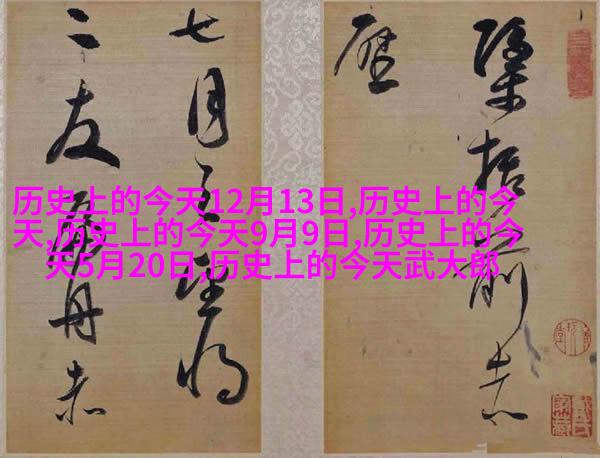 历史上的今天12月13日,历史上的今
天,历史上的今天9月9日,历史上的今
天5月20日,历史上的今天武大郎
括前赤
壁
七月之望将
二友舟赤